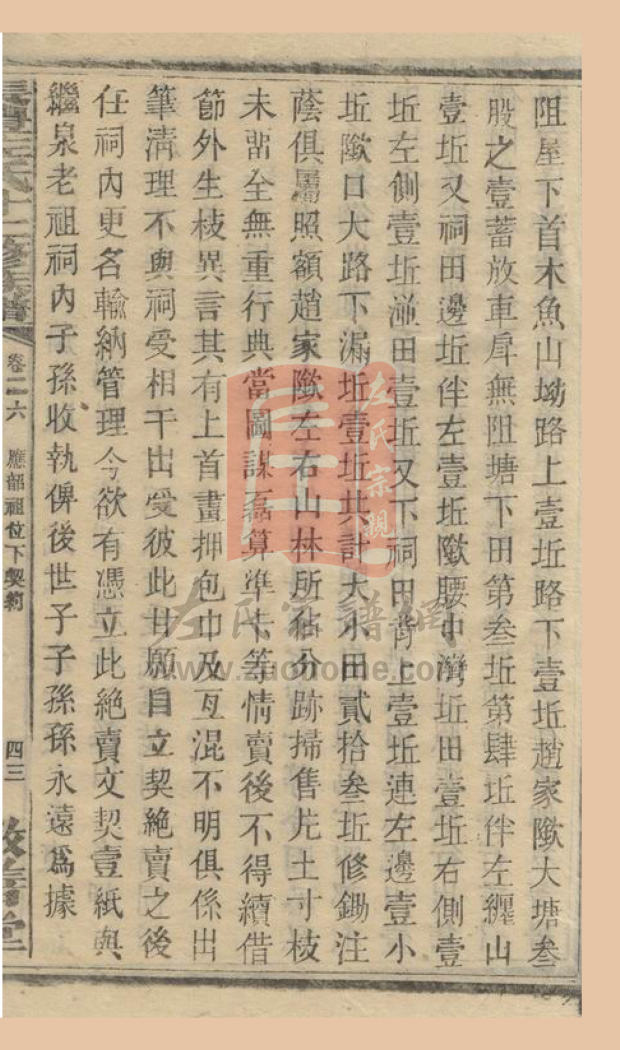 阻屋下首木魚山坳路上壹坵路下壹坵趙家歟大塘叁
股之壹蓄放車戽無阻塘下田第叁坵第肆坵伴左纒山
壹坵又祠田邊坵伴左壹坵歟腰中灣坵田壹坵右側壹
坵左側壹坵湴田壹坵又下祠田背上壹坵連左邊壹小
坵歟口大路下漏坵壹坵共計大小田貳拾叁坵修鋤注
蔭俱屬照額趙家歟左右山林所佔分跡掃售片土寸枝
未畱全無重行典當圖謀磊算準卡等情賣後不得續借
節外生枝異言其有上首畫押包巾及亙混不明俱係出
筆清理不與祠受相干出受彼此甘願自立契絶賣之後
任祠內更名輸納管理今欲有憑立此絶賣文契壹紙與
繼泉老祖祠內子孫收執俾後世子子孫孫永遠爲據
卷二六 應韶祖位下契約 四三
左氏宗親
左氏家譜網
www.zuohome.com